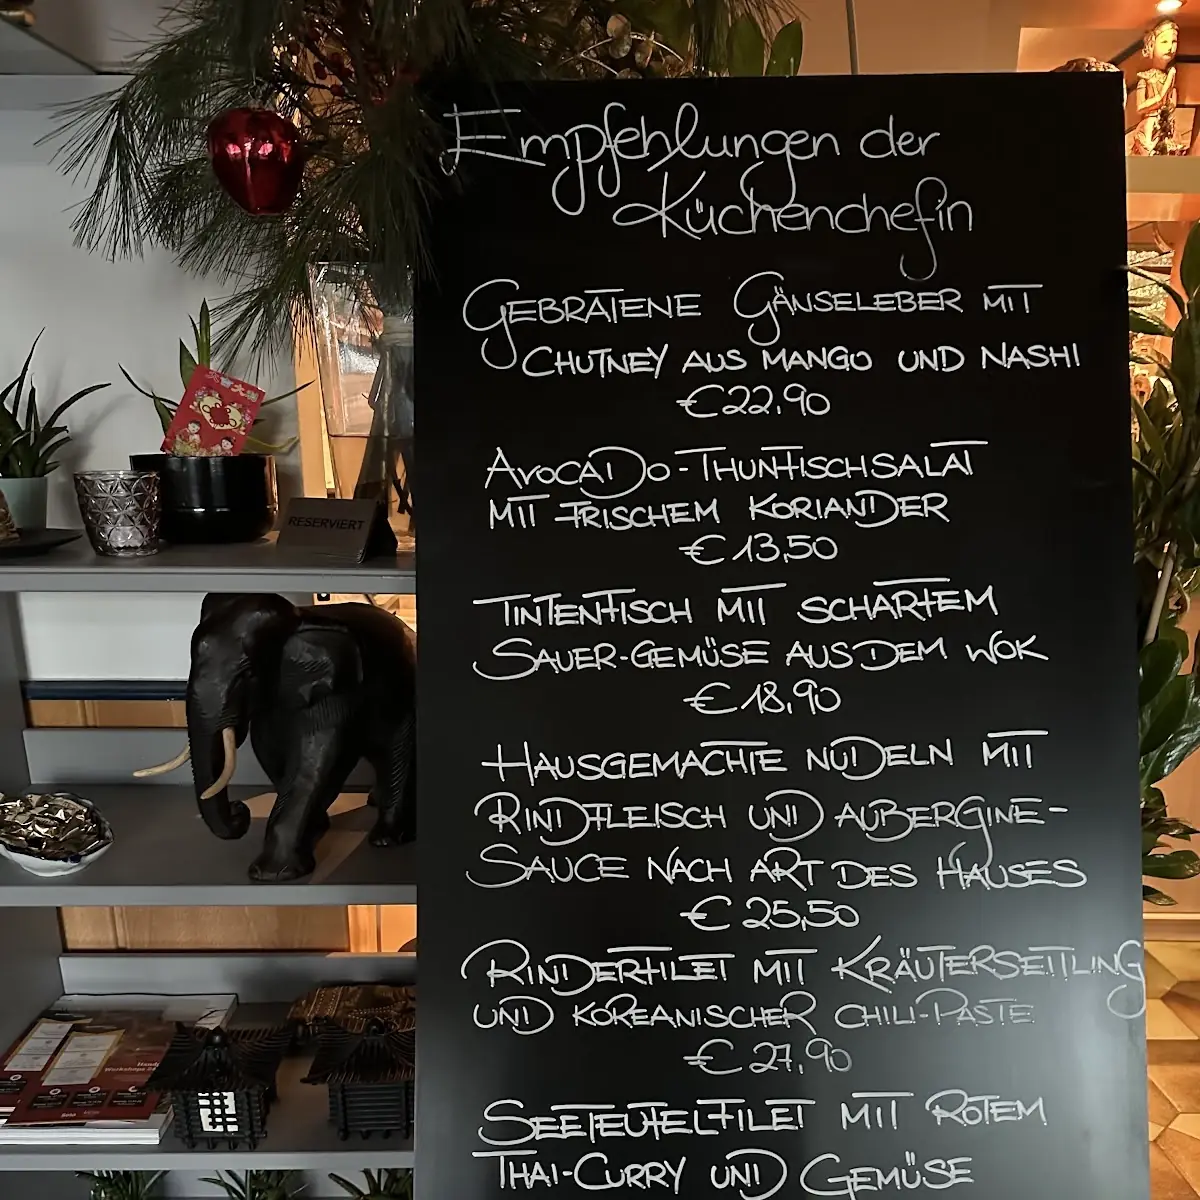 Empfehlungen der
Küchenchefin
GEBRATENE GÄNSELEBER MIT
CHUTNEY AUS MANGO UND NASHI
€22,90
AVOCADO-THUNFISCHSALAT
MIT FRISCHEM KORIANDER
€13,50
TINTENFISCH MIT SCHARFEM
SAUER-GEMÜSE AUS DEM WOK
€18,90
HAUSGEMACHTE NUDELN MIT
RINDFLEISCH UND AUBERGINE-
SAUCE NACH ART DES HAUSES
€25,50
RINDERFILET MIT KRÄUTERSEITLING
UND KOREANISCHER CHILI-PASTE
€27,90
SEETEUFELFILET MIT ROTEM
THAI-CURRY UND GEMÜSE
RESERVIERT